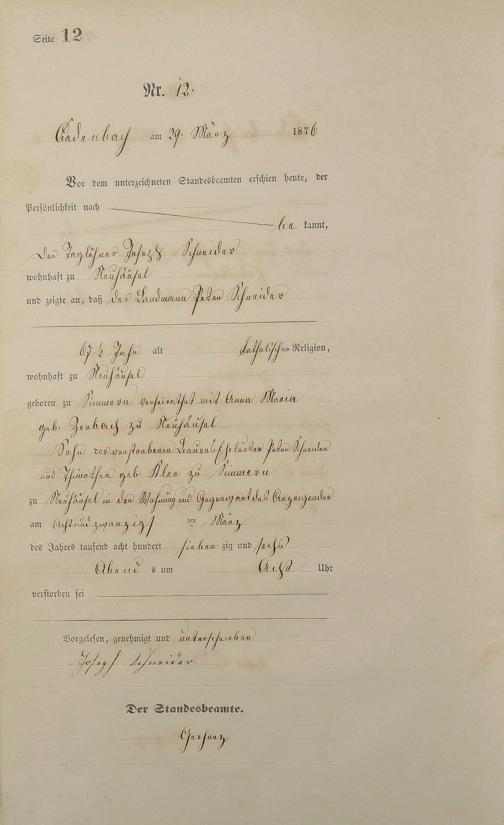 Seite 12
Nr. 12.
Cadenbach am 29. März 1876
Vor dem unterzeichneten Standesbeamten erschien heute, der
Persönlichkeit nach
be kannt,
Der Taglöhner Joseph Schneider
wohnhaft zu Neuhäusel
und zeigte an, daß der Landmann Peter Schneider
67 ½ Jahr alt katholischer Religion,
wohnhaft zu Neuhäusel
geboren zu Simmern verheirathet mit Anna Maria
geb. Zerbach zu Neuhäusel
Sohn der verstorbenen Bauers Eheleuten Peter Schneider
und Thimothea geb. Klee zu Simmern
zu Neuhäusel in der Wohnung und Gegenwart des Anzeigenden
am Acht und zwanzigs ten März
des Jahres tausend acht hundert sieben zig und sechs
Abend s um Acht Uhr
verstorben sei
Vorgelesen, genehmigt und unterschrieben
Joseph Schneider.
Der Standesbeamte.